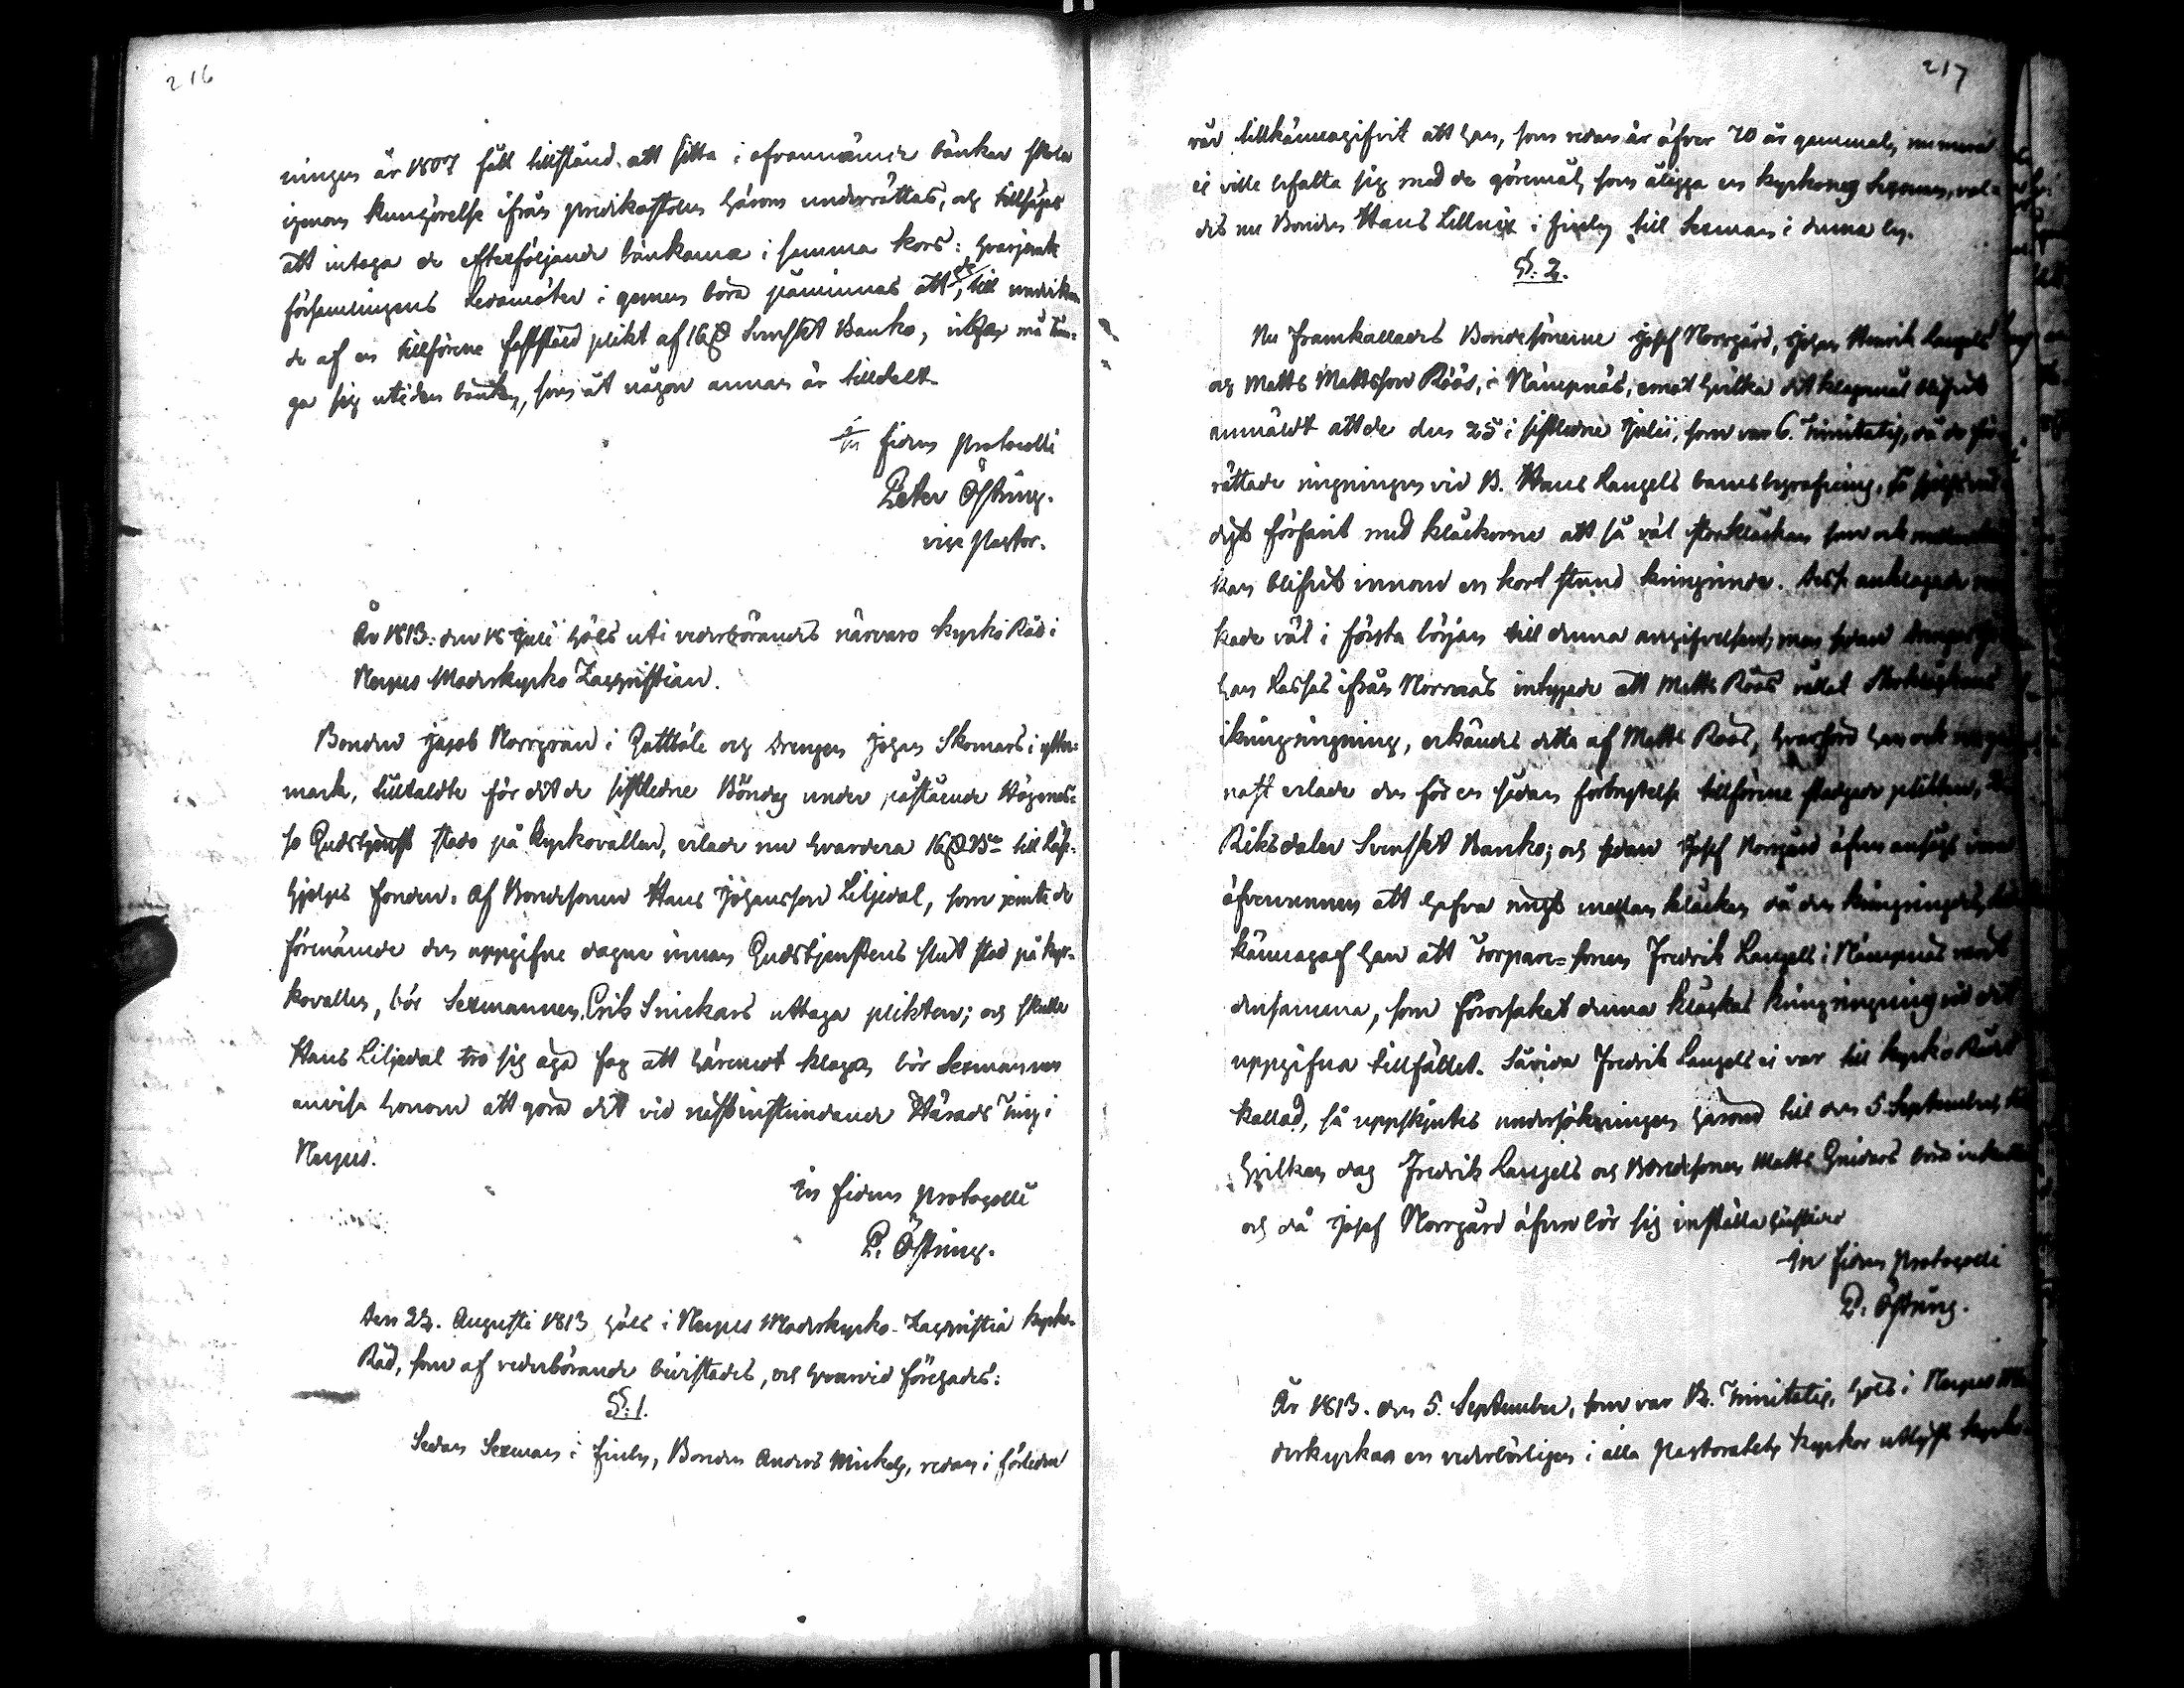 216
ningen år 1807 fått tillstånd att sitta i ofvannämnde bänkar skola
igenom kungörelse ifrån predikostolen härom underrättas, och tillsägas
att intaga de efterföljande bänkarna i samma kors: hvarjemte
församlingens Ledamöter i gemen böra påminnas att, de till undvikan-
de af en tillförene faststäld plikt af 16 ß Svenskt Banko, icke må trän-
ga sig uti den bänken, som åt någon annan är tilldelt.
In fidem Protocolli
Peter Östring.
vice Pastor.
År 1813. den 18 Julii hölls uti vederbörandes närvaro Kyrko Råd i
Nerpes Moderkyrko Sacristian.
Bonden Jacob Norrgran i Gottböle och Drengen Johan Skomars i Ytter-
mark, tilltaldte för det de sistledne Böndag under påstående Högmes-
so Gudstjenst stodo på Kyrkovallen, erlade nu hvardera 16 ß Bco till Räf-
hjelps fonden. Af Bondesonen Hans Johansson Liljedal, som jemte de
förenämde den uppgifne dagen innan Gudstjenstens slut stod på kyr-
kovallen, bör Sexmannen Erik Snickars uttaga plikten; och skulle
Hans Liljedal tro sig äga fog att häremot klaga, bör Sexmannen
anvisa honom att göra det vid nästinstundande Härads Ting i
Nerpes.
In fidem Protocolli
P. Östring.
Den 22. Augusti 1813 hölls i Nerpes Moderkyrko-Sacristia Kyrko-
Råd, som af vederbörande bivistades, och hvarvid förehades:
§: 1.
Sedan Sexman i Finby, Bonden Anders Mickels, redan i förledne
217
vår tillkännagifvit att han, som redan är öfver 70 år gammal, numera
ei ville befatta sig med de göremål, som åligga en Kyrkones Sexman, val-
des nu Bonden Hans Lillnix i Finby till Sexman i denna by.
§: 2.
Nu framkallades Bondesönerne Josef Norrgård, Johan Henrik Langels
och Matts Mattsson Röös, i Nämpnäs, emot hvilka det klagomål blifvit
anmäldt att de den 25 i sistledne Julii, som var 6. Trinitatis, då de för-
rättade ringningen vid B. Hans Langels barns begrafning,
förfarit med kläckorne att så väl storkläckan som ock
kan blifvit innom en kort stund kringvinde. Desse anklagade
kade väl i första början till denna angifvelsen, men sedan Drengen
han Lassas ifrån Norrnäs intygade att Matts Röös vållat Storkläckans
ikringringning, erkändes detta af Matts Röös, hvarföre han ock
nast erlade den för en sådan förbrytelse tillförene stadgade plikten,
Riksdaler Svenskt Banko; och sedan Josef Norrgård äfven ansågs vara
öfvervunnen att hafva ringt mellankläckan då den kringringdes,
kännagaf han att Torpare-sonen Fredrik Langels i Nämpnäs varit
densamme, som förorsakat denna kläckas kringringning vid det
uppgifna tillfället. Såvida Fredrik Langels ei var till Kyrko Rådet
kallad, så uppskjutes undersökningen härom till den 5 September, till
hvilken dag Fredrik Langels och Bondesonen Matts Gneiders böra inkallas
och då Josef Norrgård äfven bör sig inställa härstädes
In fidem Protocolli
P. Östring.
År 1813. den 5. September, som var 12. Trinitatis, hölls i Nerpes Mo-
derkyrkan en vederbörligen i alla Pastoratets kyrkor utlyst kyrko-